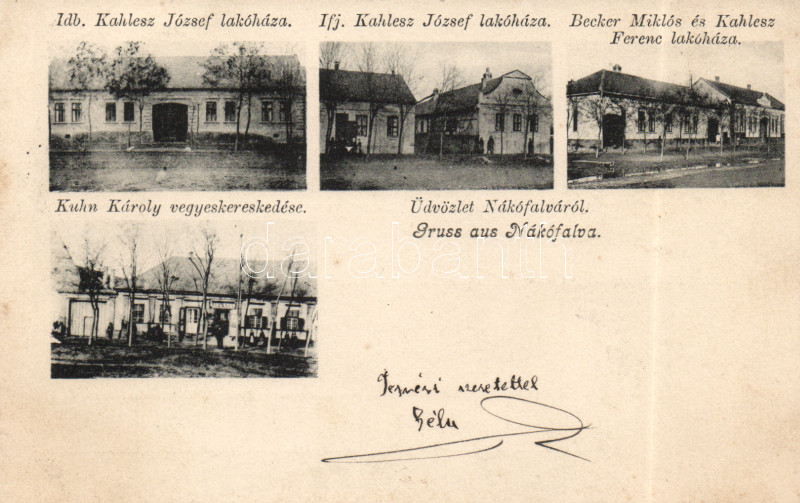 Idb. Kahlesz József lakóháza.
Ifj. Kahlesz József lakóháza.
Becker Miklós és Kahlesz
Ferenc lakóháza.
Kuhn Károly vegyeskereskedése.
Üdvözlet Nákófalváról.
Gruss aus Nákófalva.
darabanth
Testvéri szeretettel
Béla